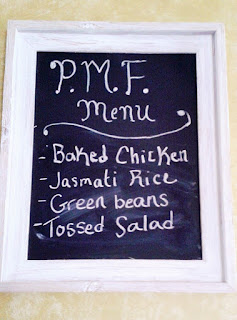 P.M.F.
Menu
- Baked Chicken
- Jasmati Rice
- Green beans
- Tossed Salad